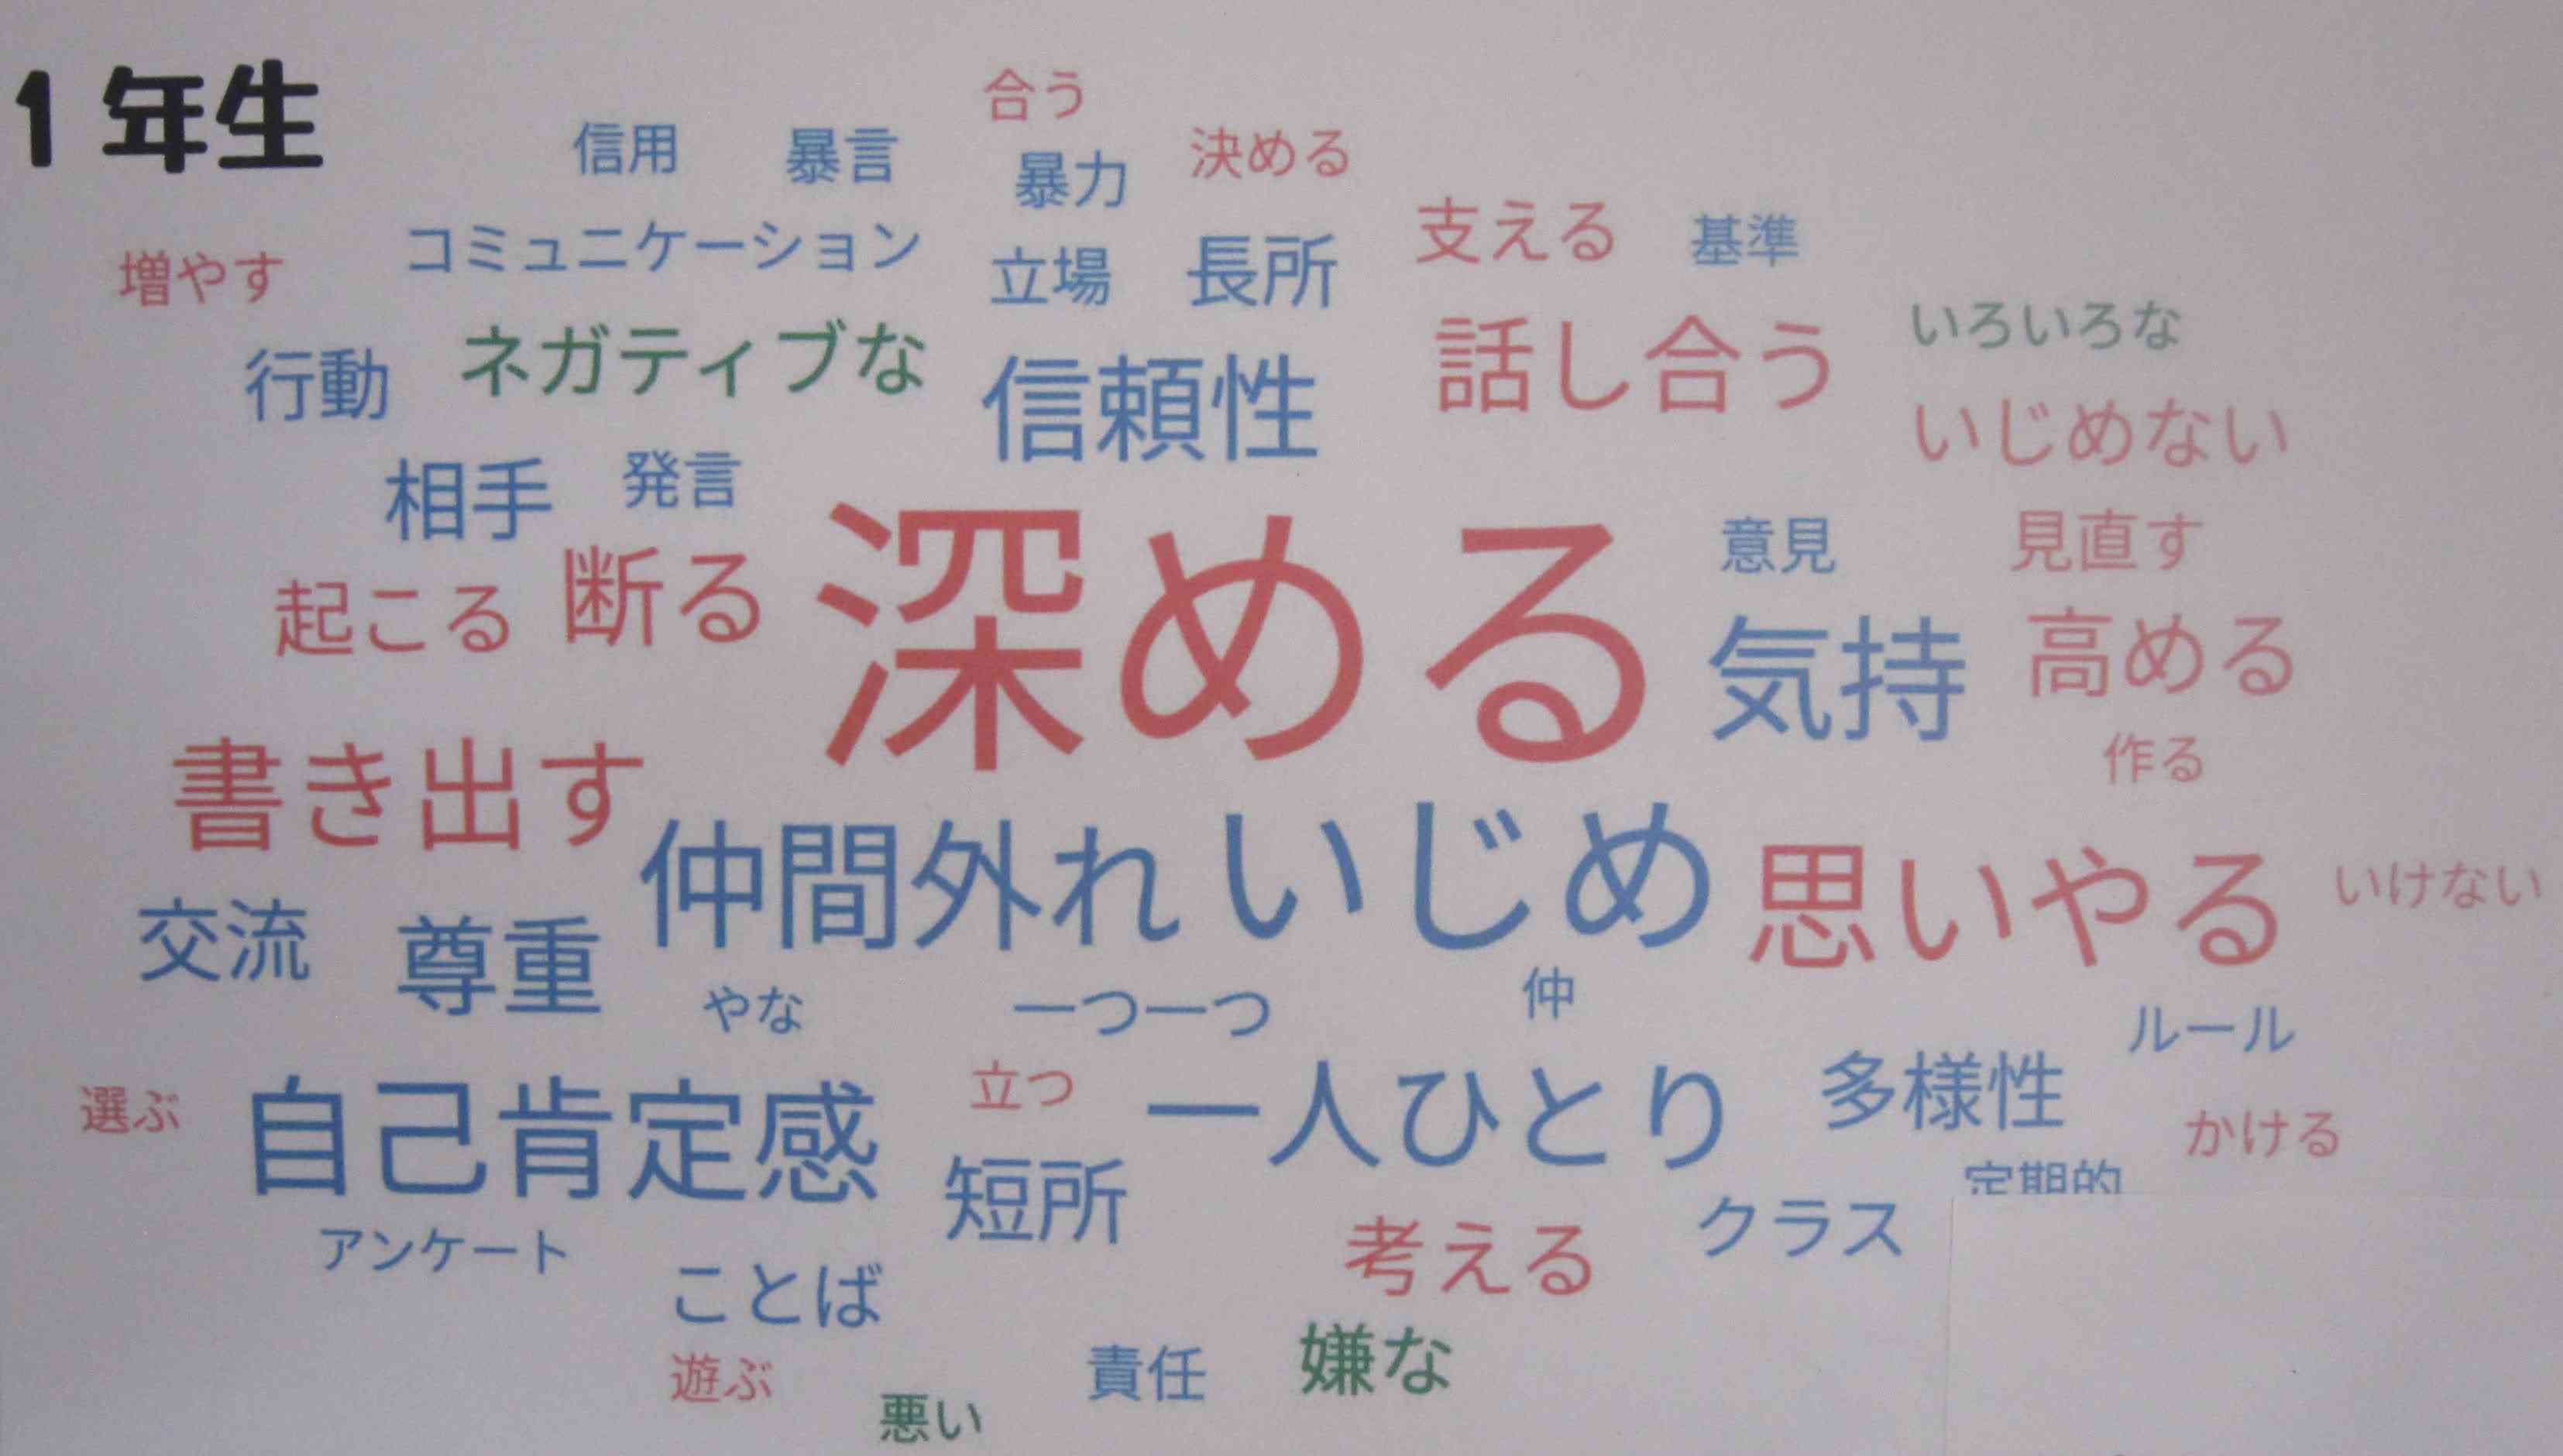 1年生
合う
信用 暴言 暴力 決める
増やす コミュニケーション 立場 長所 支える 基準
行動 ネガティブな 信頼性 話し合う いろいろな
いじめない
相手 発言
起こる 断る 深める 意見 見直す
気持 高める
作る
書き出す
仲間外れ いじめ 思いやる いけない
交流 尊重 やな 一つ一つ 仲 ルール
選ぶ 自己肯定感 立つ 一人ひとり 多様性 かける
短所 定期的
アンケート ことば 考える クラス
遊ぶ 悪い 責任 嫌な